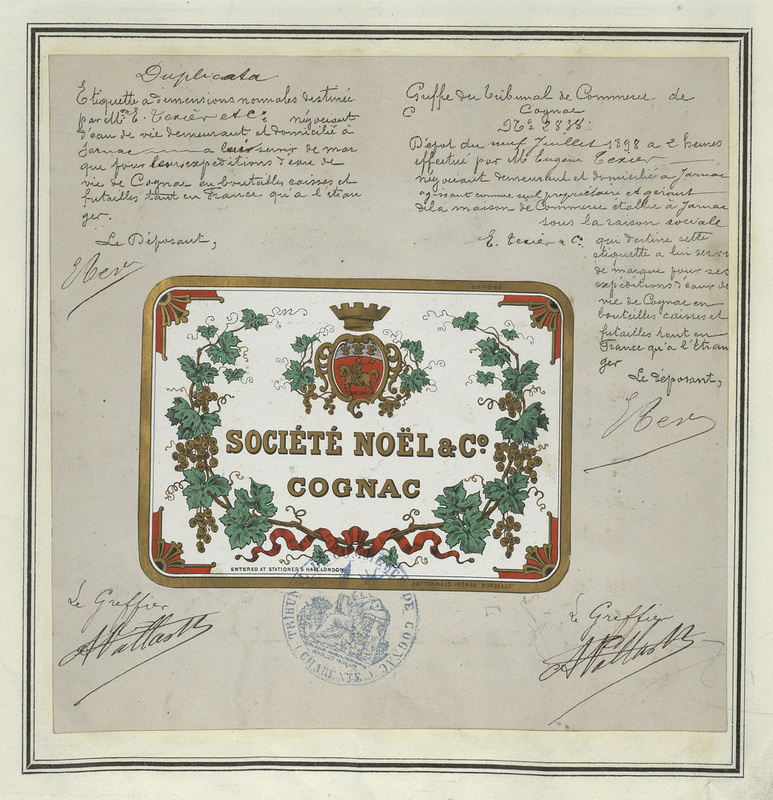 Duplicata
Etiquette a dimensions normales destinée
par Mr E. Texier et Cie négociant
d'eau de vie demeurant et domicilié à
Jarnac a leur servir de mar
que pour leurs expéditions d'eau de
vie de Cognac en bouteilles caisses et
futailles tant en France qu'a l'étran
ger.
Le Déposant,
Greffe du Tribunal de Commerce de
C Cognac
No 2838
Dépot du neuf Juillet 1898 a 2 heures
effectué par Mr Eugène Texier
négociant demeurant et domicilié a Jarnac
agissant comme seul propriétaire et gérant
de la maison de Commerce etablie à Jarnac
sous la raison sociale
E. Texier & Cie que destine cette
étiquette a lui servir
de marque pour ses
expéditions d'eaux de
vie de Cognac en
bouteilles caisses et
futailles tant en
France qu'a l'étran
ger
Le déposant,
DÉPOSÉ
SOCIÉTÉ NOËL & Co
COGNAC
ENTERED AT STATIONER'S HALL LONDON
WETTERWALD FRÈRES BORDEAUX
TRIBUNAL DE COMMERCE DE COGNAC
(CHARENTE)
Le Greffier
Le Greffier